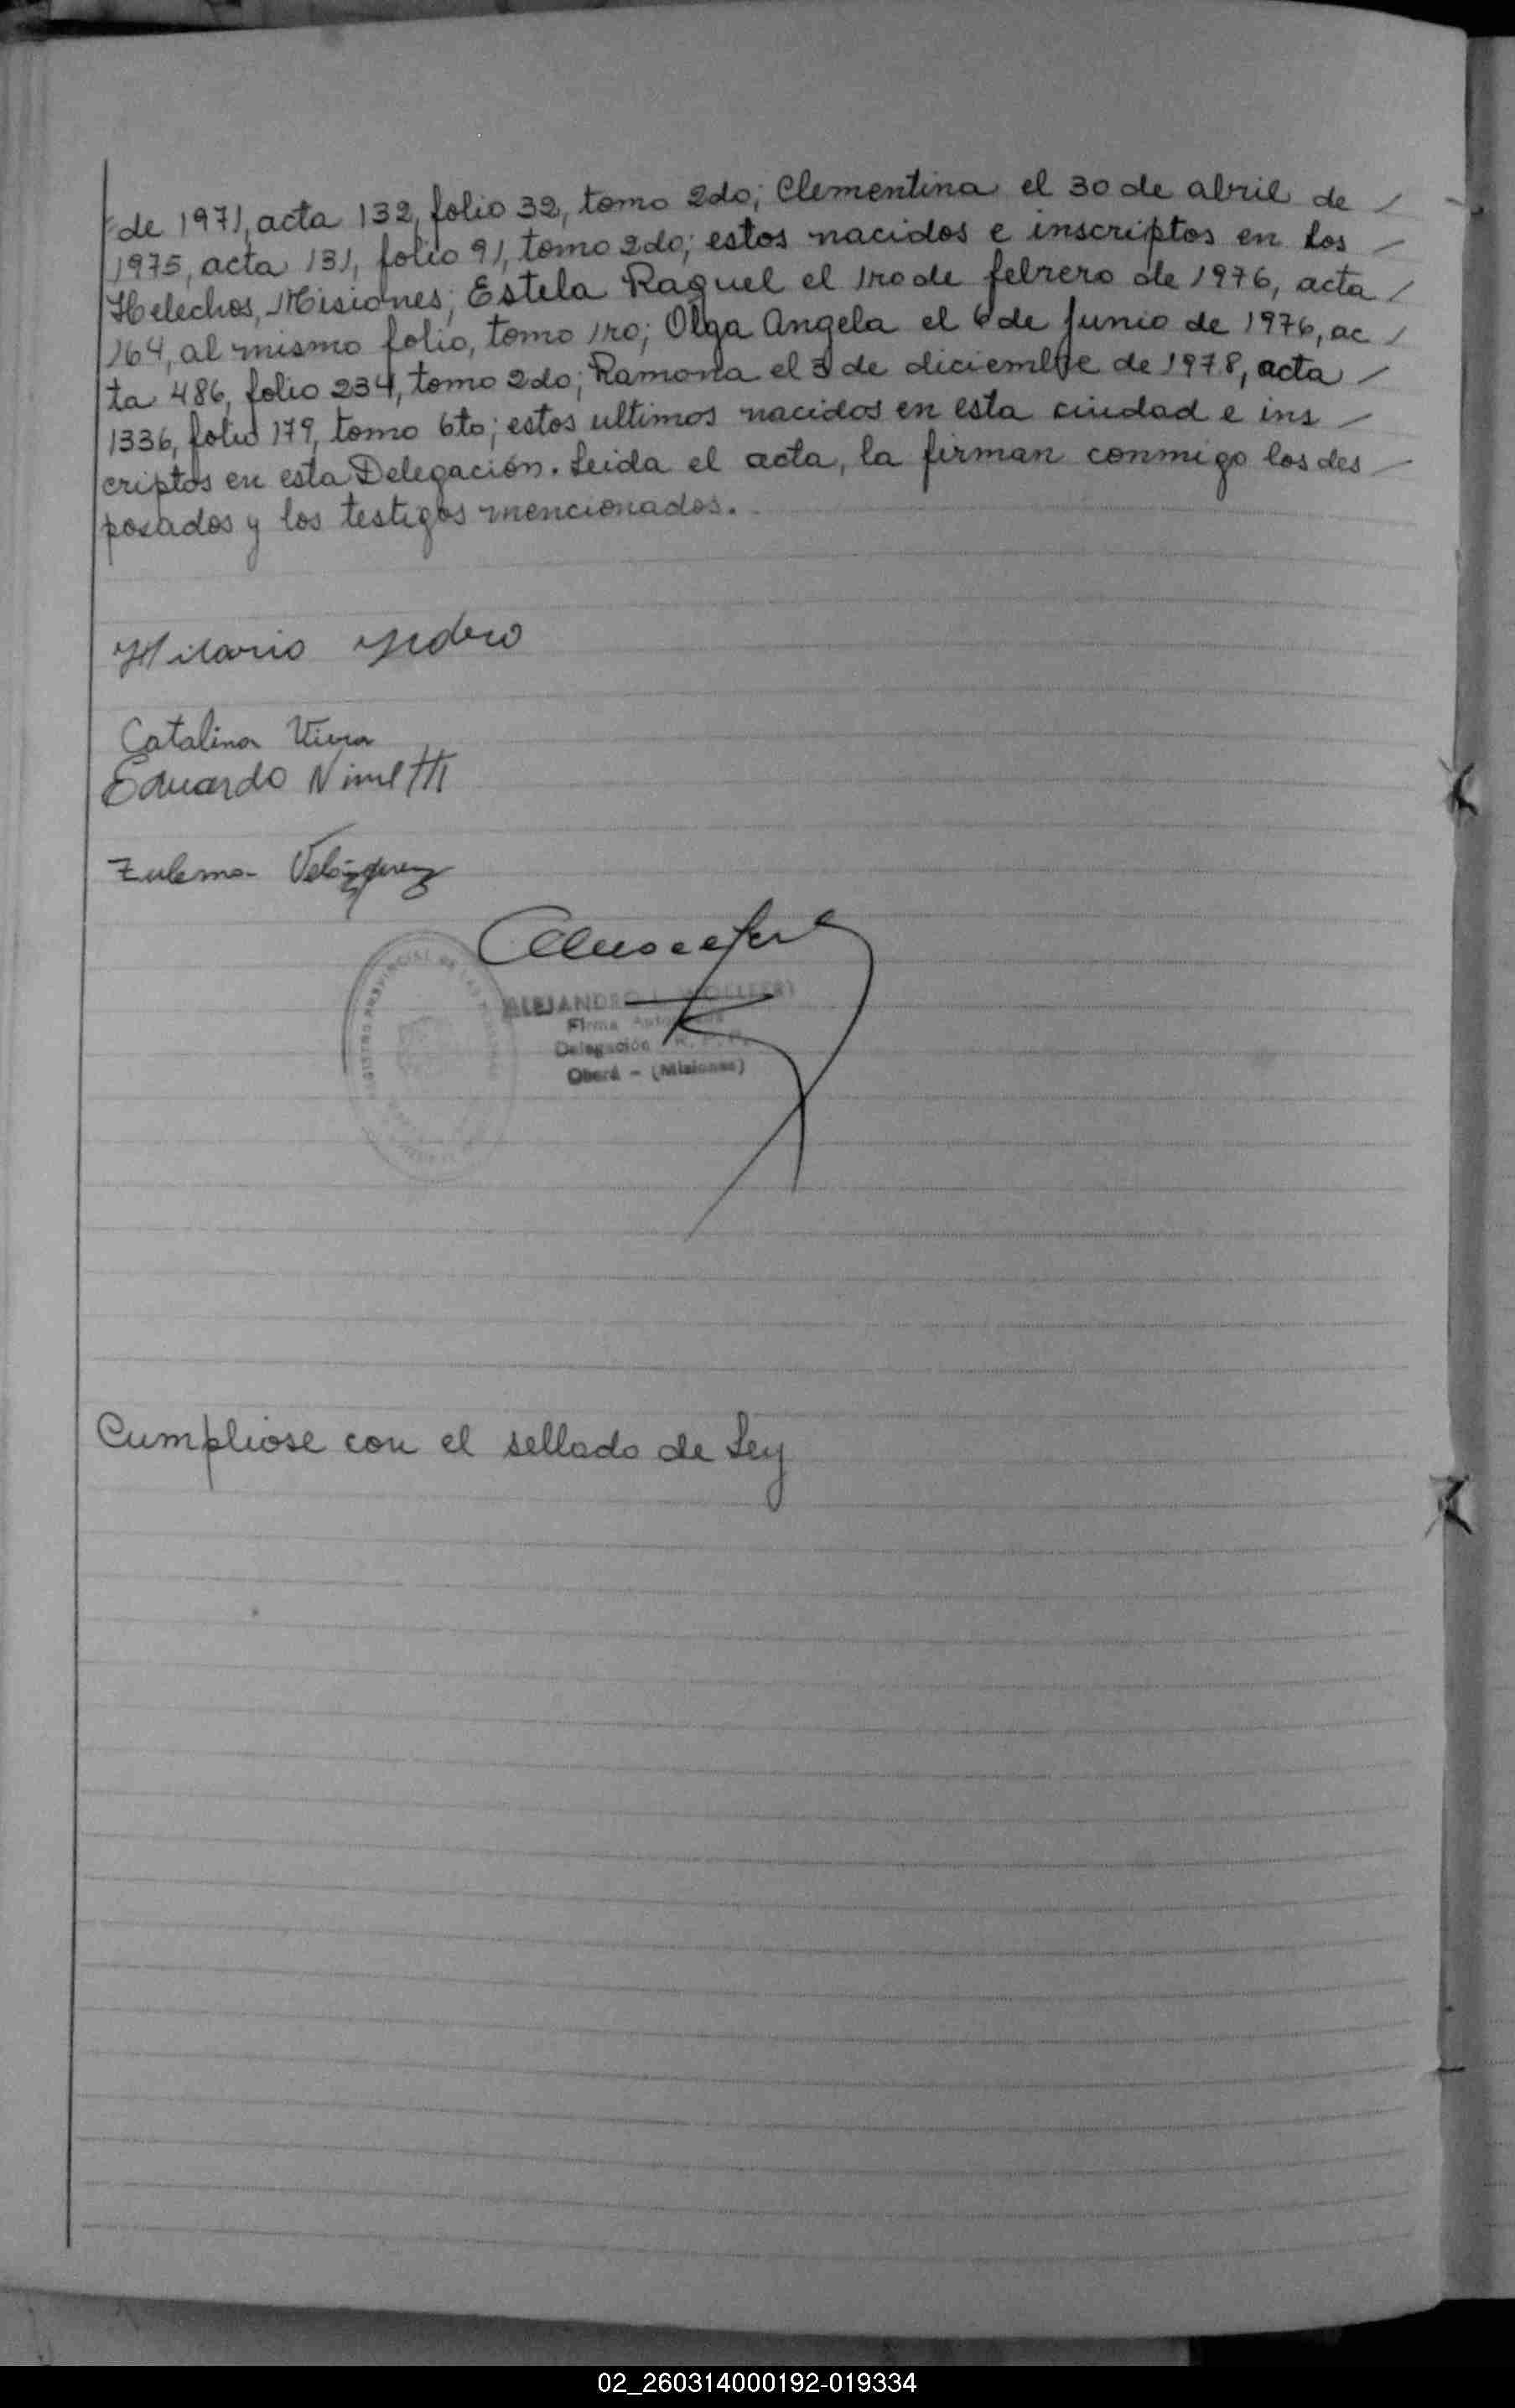 de 1971, acta 132, folio 32, tomo 2do; Clementina el 30 de abril de /
1975, acta 131, folio 91, tomo 2do; estos nacidos e inscriptos en Los /
Helechos, Misiones; Estela Raquel el 1ro de febrero de 1976, acta /
164, al mismo folio, tomo 1ro; Olga Angela el 6 de Junio de 1976, ac /
ta 486, folio 234, tomo 2do; Ramona el 3 de diciembre de 1978, acta /
1336, folio 179, tomo 6to; estos ultimos nacidos en esta ciudad e ins /
criptos en esta Delegación. Leida el acta, la firman conmigo los des /
posados y los testigos mencionados.
Hilario
Catalina
Eduardo
Zulema Velázquez
ALEJANDRO
Firma
Delegación R. P. P.
Oberá - (Misiones)
Cumpliose con el sellado de Ley
02_260314000192-019334